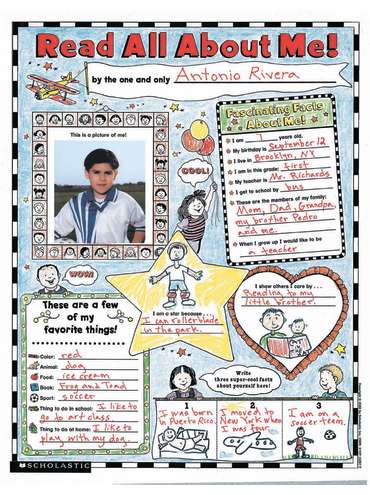 Read All About Me!
by the one and only Antonio Rivera
This is a picture of me!
COOL!
Fascinating Facts
About Me!
I am 7 years old.
My birthday is September 12
I live in Brooklyn, NY
I am in this grade: first
My teacher is Mr. Richards
I get to school by bus
These are the members of my family:
Mom, Dad, Grandpa,
my brother Pedro
and me.
When I grow up I would like to be
a teacher
WOW!
I am a star because . . .
I can rollerblade
in the park.
I show others I care by . . .
Reading to my
little brother.
These are a few
of my
favorite things!
Color: red
Animal: dog
Food: ice cream
Book: Frog and Toad
Sport: soccer
Thing to do in school: I like to
go to art class
Thing to do at home: I like to
play with my dog.
Write
three super-cool facts
about yourself here!
1
I was born
in Puerto Rico.
2
I moved to
New York when
I was four.
3
I am on a
soccer team.
SCHOLASTIC